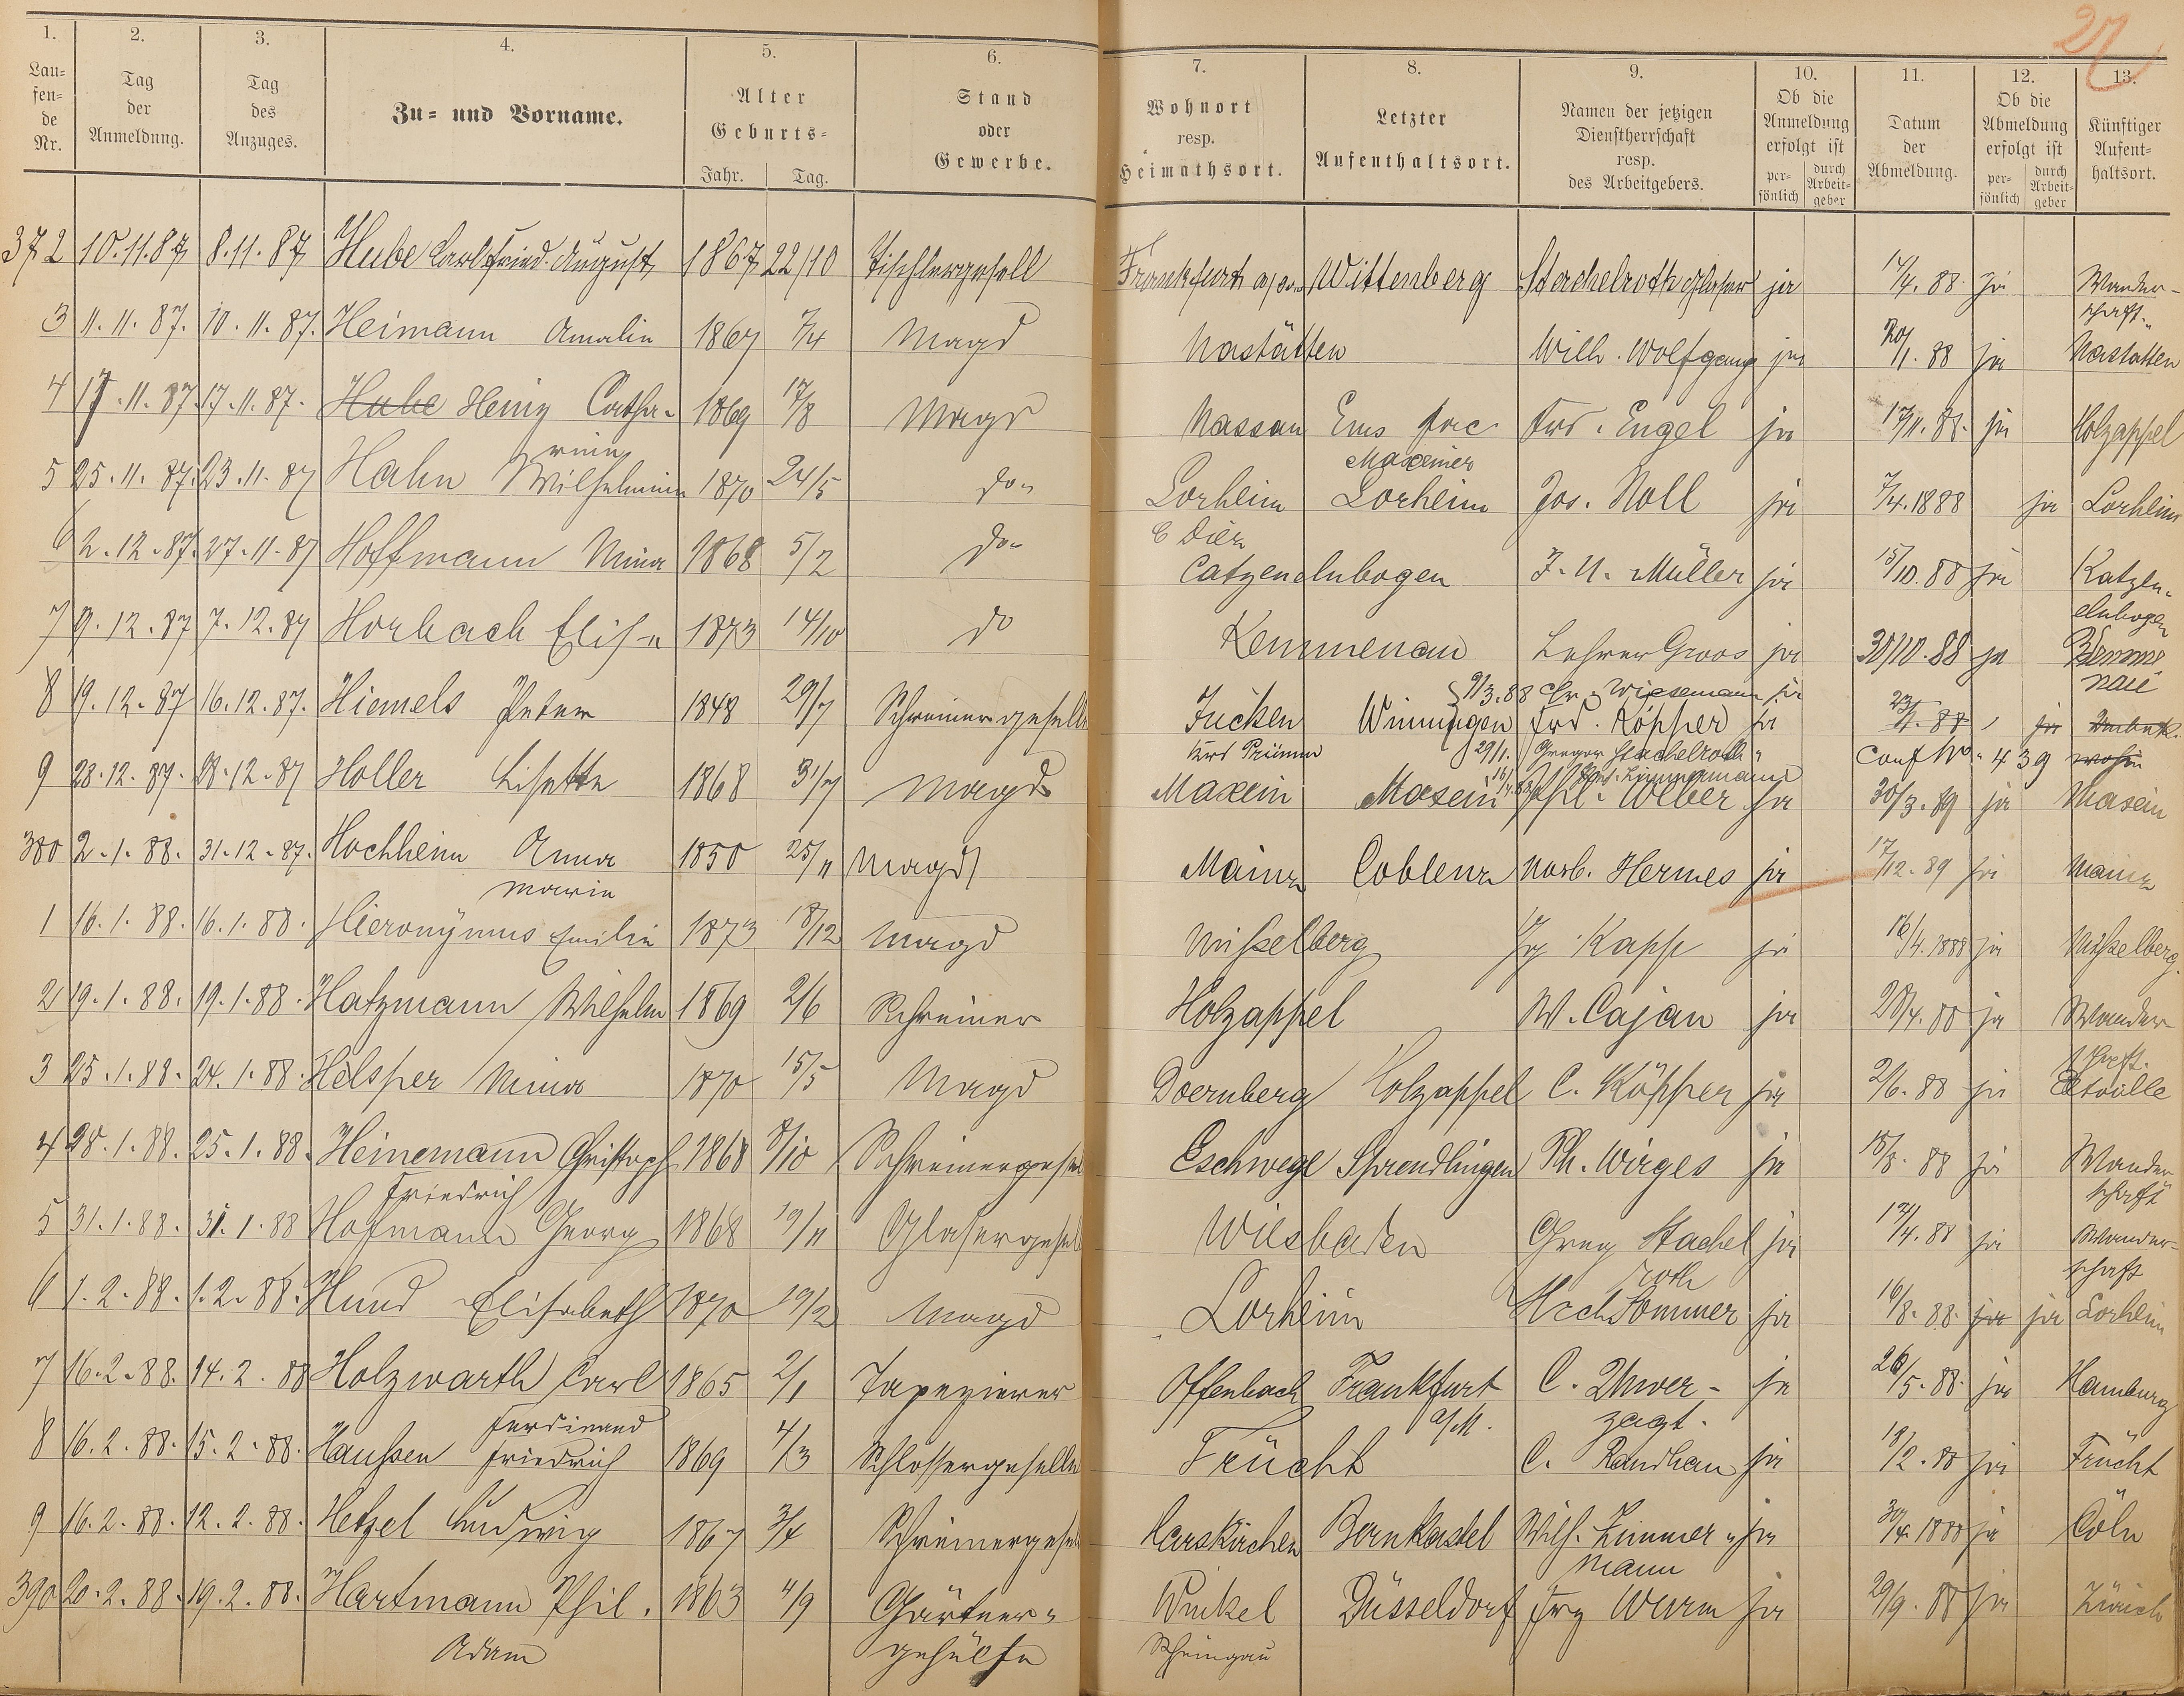 27
1. 2. 3. 4. 5. 6. 7. 8. 9. 10. 11. 12. 13.
Laufende Nr. Tag der Anmeldung. Tag des Anzuges. Zu= und Vorname. Alter Geburts= Jahr. Tag. Stand oder Gewerbe. Wohnort resp. Heimathsort. Letzter Aufenthaltsort. Namen der jetzigen Dienstherrschaft resp. des Arbeitgebers. Ob die Anmeldung erfolgt ist persönlich durch Arbeitgeber Datum der Abmeldung. Ob die Abmeldung erfolgt ist persönlich durch Arbeitgeber Künftiger Aufenthaltsort.
372 10.11.87 8.11.87 Hube Carl Fried. August 1867 22/10 Tischlergesell Frankfurt a/O. Wittenberg Stachelroth Glaser ja 1/4.88 ja Wander-
schaft.
3 11.11.87. 10.11.87. Heimann Amalie 1867 7/4 Magd Nastätten Wilh. Wolfgang ja 20/1.88 ja Nastätten
4 17.11.87. 17.11.87. Hube Heinz Catha- 1869 17/8 Magd Nassau Ems Frd. Engel ja 17/11.88. ja Holzappel
rine Maxeiner
5 25.11.87. 23.11.87 Hahn Wilhelmine 1870 24/5 do. Lorheim Lorheim Jos. Noll ja 7/4.1888 ja Lorheim
6 2.12.87. 27.11.87 Hoffmann Mina 1868 5/2 do. Catzenelnbogen J. U. Müller ja 15/10.88 ja Katzen-
elnbogen
7 9.12.87 7.12.87 Horbach Elise 1873 14/10 do Kemmenau Lehrer Groos ja 30/10.88 ja Kemme
nau
9/3.88 Chr. Wiesemann ja
8 19.12.87 16.12.87. Hiemels Peter 1848 29/7 Schreinergeselle Jucken Winningen Frd. Köpper ja 23/4.88 ja Unbek.
Krs Prümm 29/1. Gregor Stachelroth Conf No. 439 wohin
Zimmermann
9 28.12.87. 28.12.87 Holler Lisette 1868 31/7 Magd Maxein Maxein Phil. Weber ja 30/3.89 ja Maxein
380 2.1.88. 31.12.87. Hochheim Anna 1850 25/11 Magd Mainz Coblenz Norb. Hermes ja 17/12.89 ja Mainz
Marie
1 16.1.88. 16.1.88. Hieronymus Emilie 1873 18/12 Magd Misselberg Kapp ja 16/4.1888 ja Misselberg
2 19.1.88. 19.1.88. Hatzmann Wilhelm 1869 2/6 Schreiner Holzappel W. Cajan ja 28/4.88 ja Wander-
schaft.
3 25.1.88. 24.1.88. Helsper Mina 1870 15/5 Magd Doernberg Holzappel C. Köpper ja 2/6.88 ja Eltville
4 28.1.88. 25.1.88. Heinemann Christoph 1868 8/10 Schreinergesel Eschwege Sprendlingen Ph. Wirges ja 18/8.88 ja Wander
Friedrich schaft
5 31.1.88. 31.1.88 Hofmann Georg 1868 19/11 Glasergesel Wiesbaden Greg Stachel ja 12/4.88 ja Wander-
roth schaft
6 1.2.88. 1.2.88. Hund Elisabeth 1870 19/2 Magd Lorheim Hch Sommer ja 16/8.88. ja ja Lorheim
7 16.2.88. 14.2.88 Holzwarth Carl 1865 2/1 Tapezierer Offenbach Frankfurt C. Unver- ja 26/5.88. ja Hamburg
Ferdinand a/M. zagt.
8 16.2.88. 15.2.88. Haussen Friedrich 1869 4/3 Schlossergeselle Frücht C. Randhan ja 19/2.88 ja Frücht
9 16.2.88. 12.2.88. Hetzel Ludwig 1867 3/4 Schreinergesel Karskirchen Bernkastel Wilh. Zimmer- ja 30/4.1888 ja Cöln
mann
390 20.2.88. 19.2.88. Hartmann Phil. 1863 4/9 Gärtner- Winkel Düsseldorf Wurm ja 29/9.88 ja Zürich
Adam gehülfe Rheingau